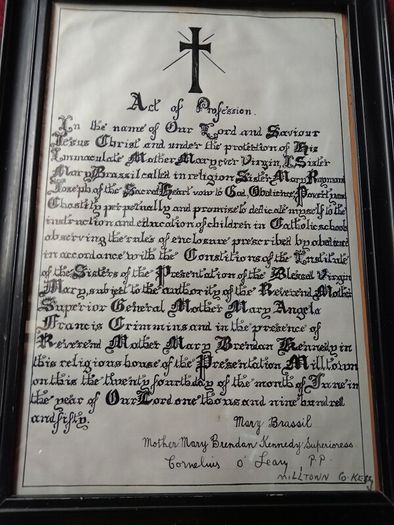 Act of Profession.
In the name of Our Lord and Saviour
Jesus Christ and under the protetion of His
Immaculate Mother Mary ever Virgin, I, Sister
Mary Brassil called in religion, Sister Mary Raymond
Joseph of the Sacred Heart vow to God, Obedience, Poverty and
Chastity perpetually and promise to dedicate myself to the
instruction and education of children in Catholic schools
observing the rules of enclosure prescribed by obedience
in accordance with the Constitions of the Institute
of the Sisters of the Presentation of the Blessed Virgin
Mary, subject to the authority of the Reverend Mother
Superior General Mother Mary Angela
Francis Crimmins and in the presence of
Reverend Mother Mary Brendan Kennedy in
this religious house of the Presentation Milltown
on this the twenty fourth day of the month of June in
the year of Our Lord one thous and nine hundred
and fifty.
Mary Brassil
Mother Mary Brendan Kennedy Superioress
Cornelius O'Leary, P.P.
MILLTOWN Co. KERRY